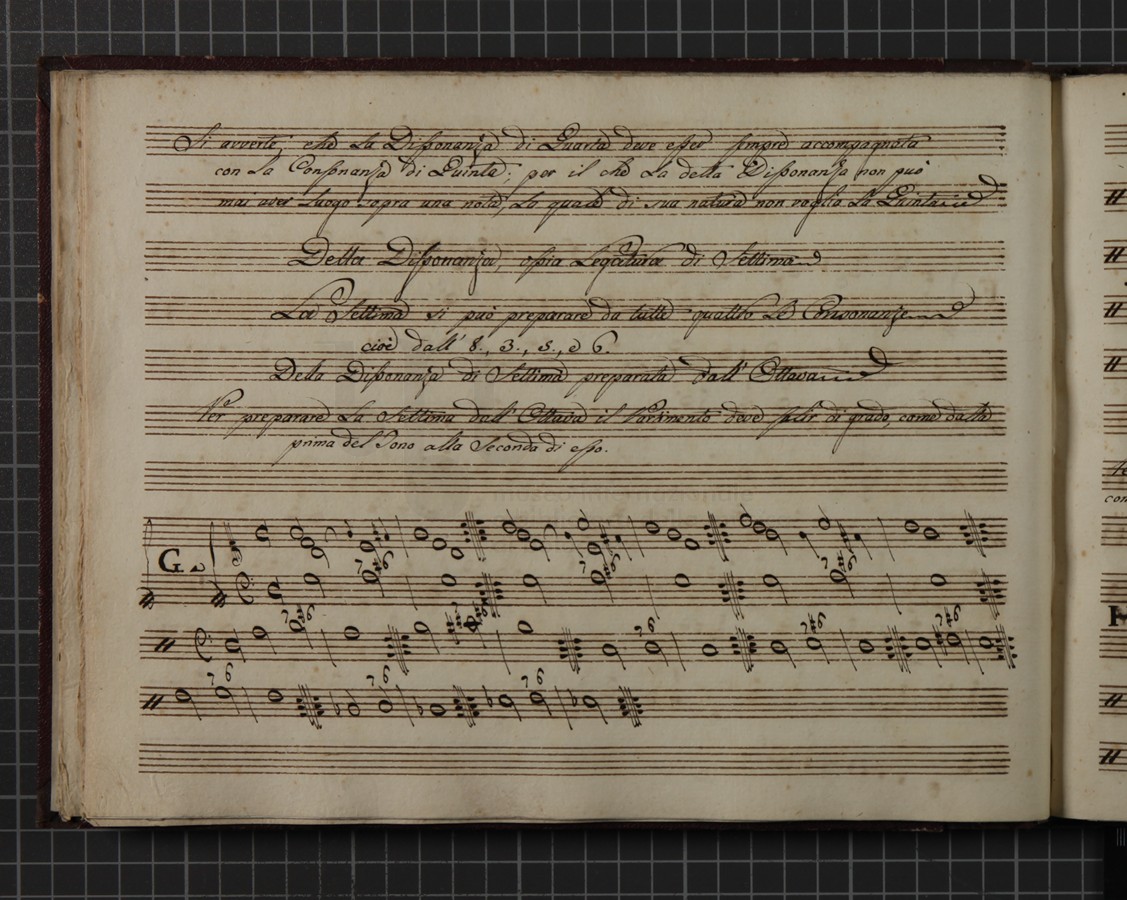 Si averte, che La Dissonanza di Quarta deve esser sempre accompagnata
con La Consonanza di Quinta; per il che La detta Dissonanza non può
mai aver Luogo sopra una nota, La quale di sua natura non voglia La Quinta
Della Dissonanza, ossia Legatura di Settima
La Settima si può preparare da tutte quattro Le Consonanze
cioè dall' 8., 3., 5., e 6.
Della Dissonanza di Settima preparata dall' Ottava
Per preparare La Settima dall' Ottava il Partimento deve salir di grado, come dalla
prima del Tono alla Seconda di esso.
G.
7 6 7 6 7 6
7 6 7 6 7 6 7 6 7 6
7 6 7 6 7 6